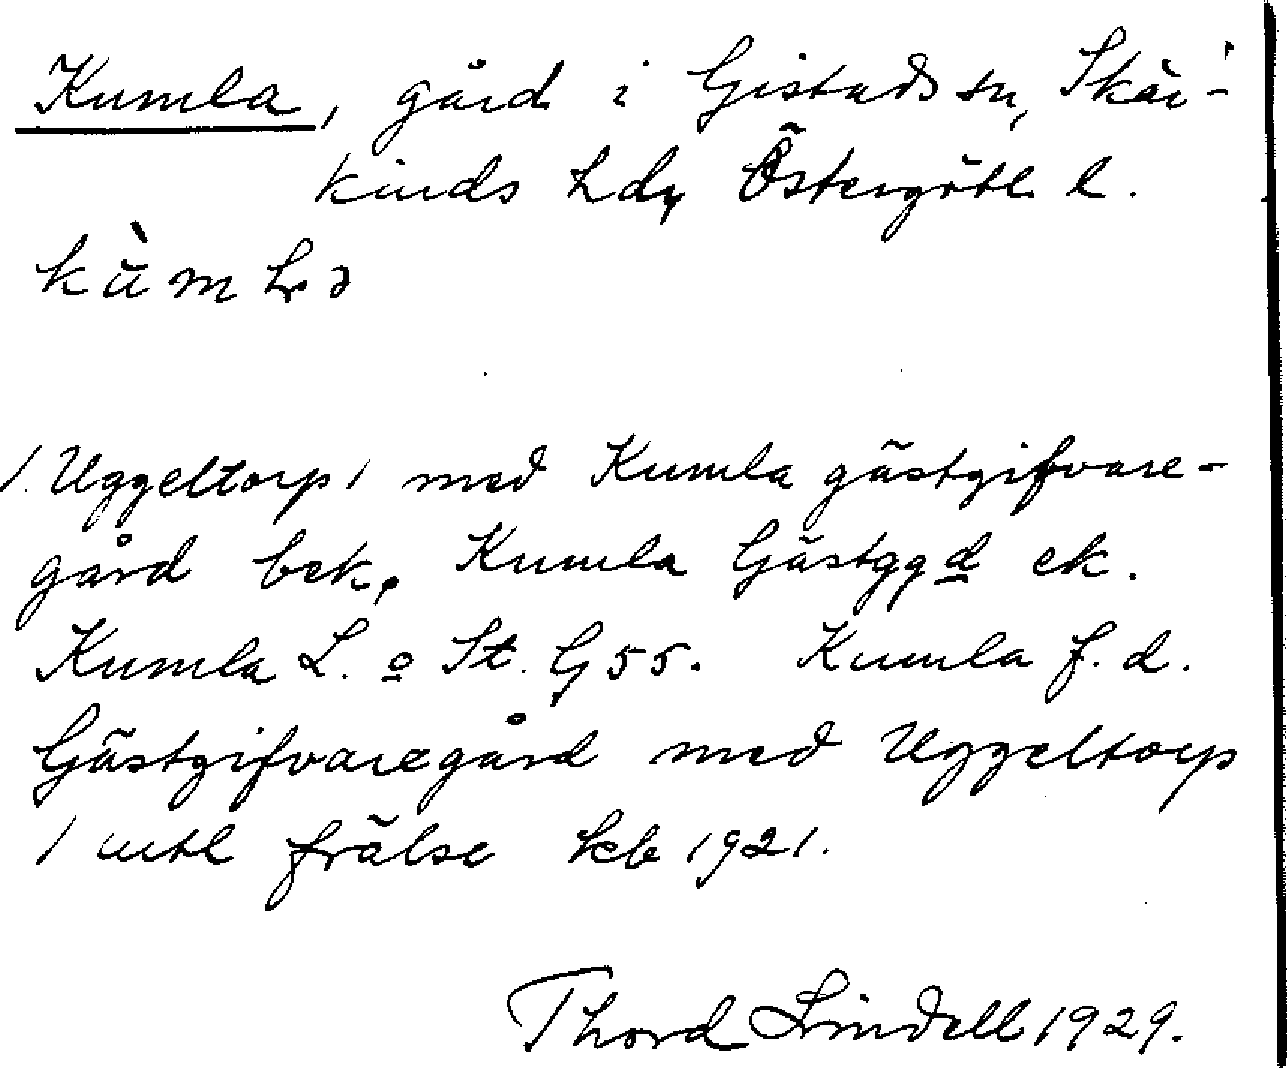 Kumla, gård i Gistads sn, Skär-
kinds hd, Östergötl. l.
kùmlə
/. Uggeltorp / med Kumla gästgifvare-
gård bek. Kumla Gästggd ek.
Kumla L. o St. G 55. Kumla f.d.
Gästgifvaregård med Uggeltorp
1 mtl frälse kb 1921.
Thord Lindell 1929.